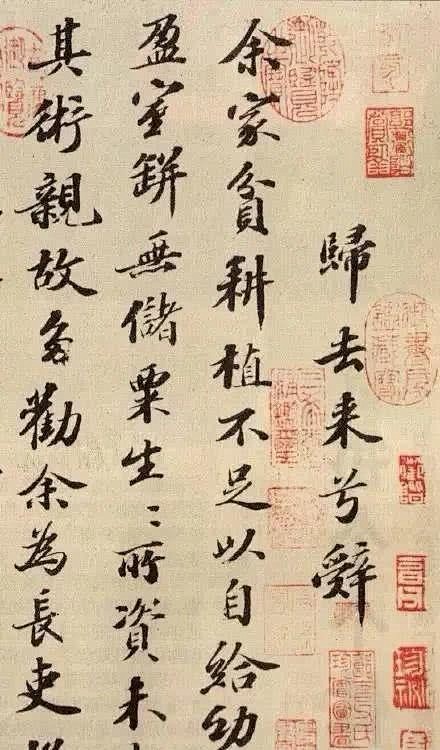 歸去来兮辭
余家貧耕植不足以自給幼
盈室缾無儲粟生〻所資未
其術親故多勸余為長吏